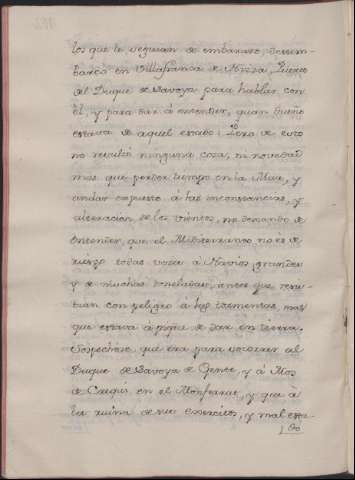 los que le seguian de embarazo, desem-
barcó en Villafranca de Niza, Puerto
del Duque de Saboya para hablar con
él, y para dar á entender, quan dueño
estaba de aquel estado: Pero de esto
no resultó ninguna cosa, ni novedad
mas que perder tiempo en la Mar, y
andar expuesto á las inconstancias, y
alteracion de los vientos, no dexando de
entender, que el Mediterraneo no es de
todas veces á Navios grandes
y de muchas toneladas, antes que
con peligro á las tormentas, mas
que estaba á pique de dar en tierra.
Sospechose que era para socorrer al
Duque de Saboya de Gente, y á Mos
de Crequi en el Monferrat, y que á
la ruina de sus Exercitos, y mal esta-
do